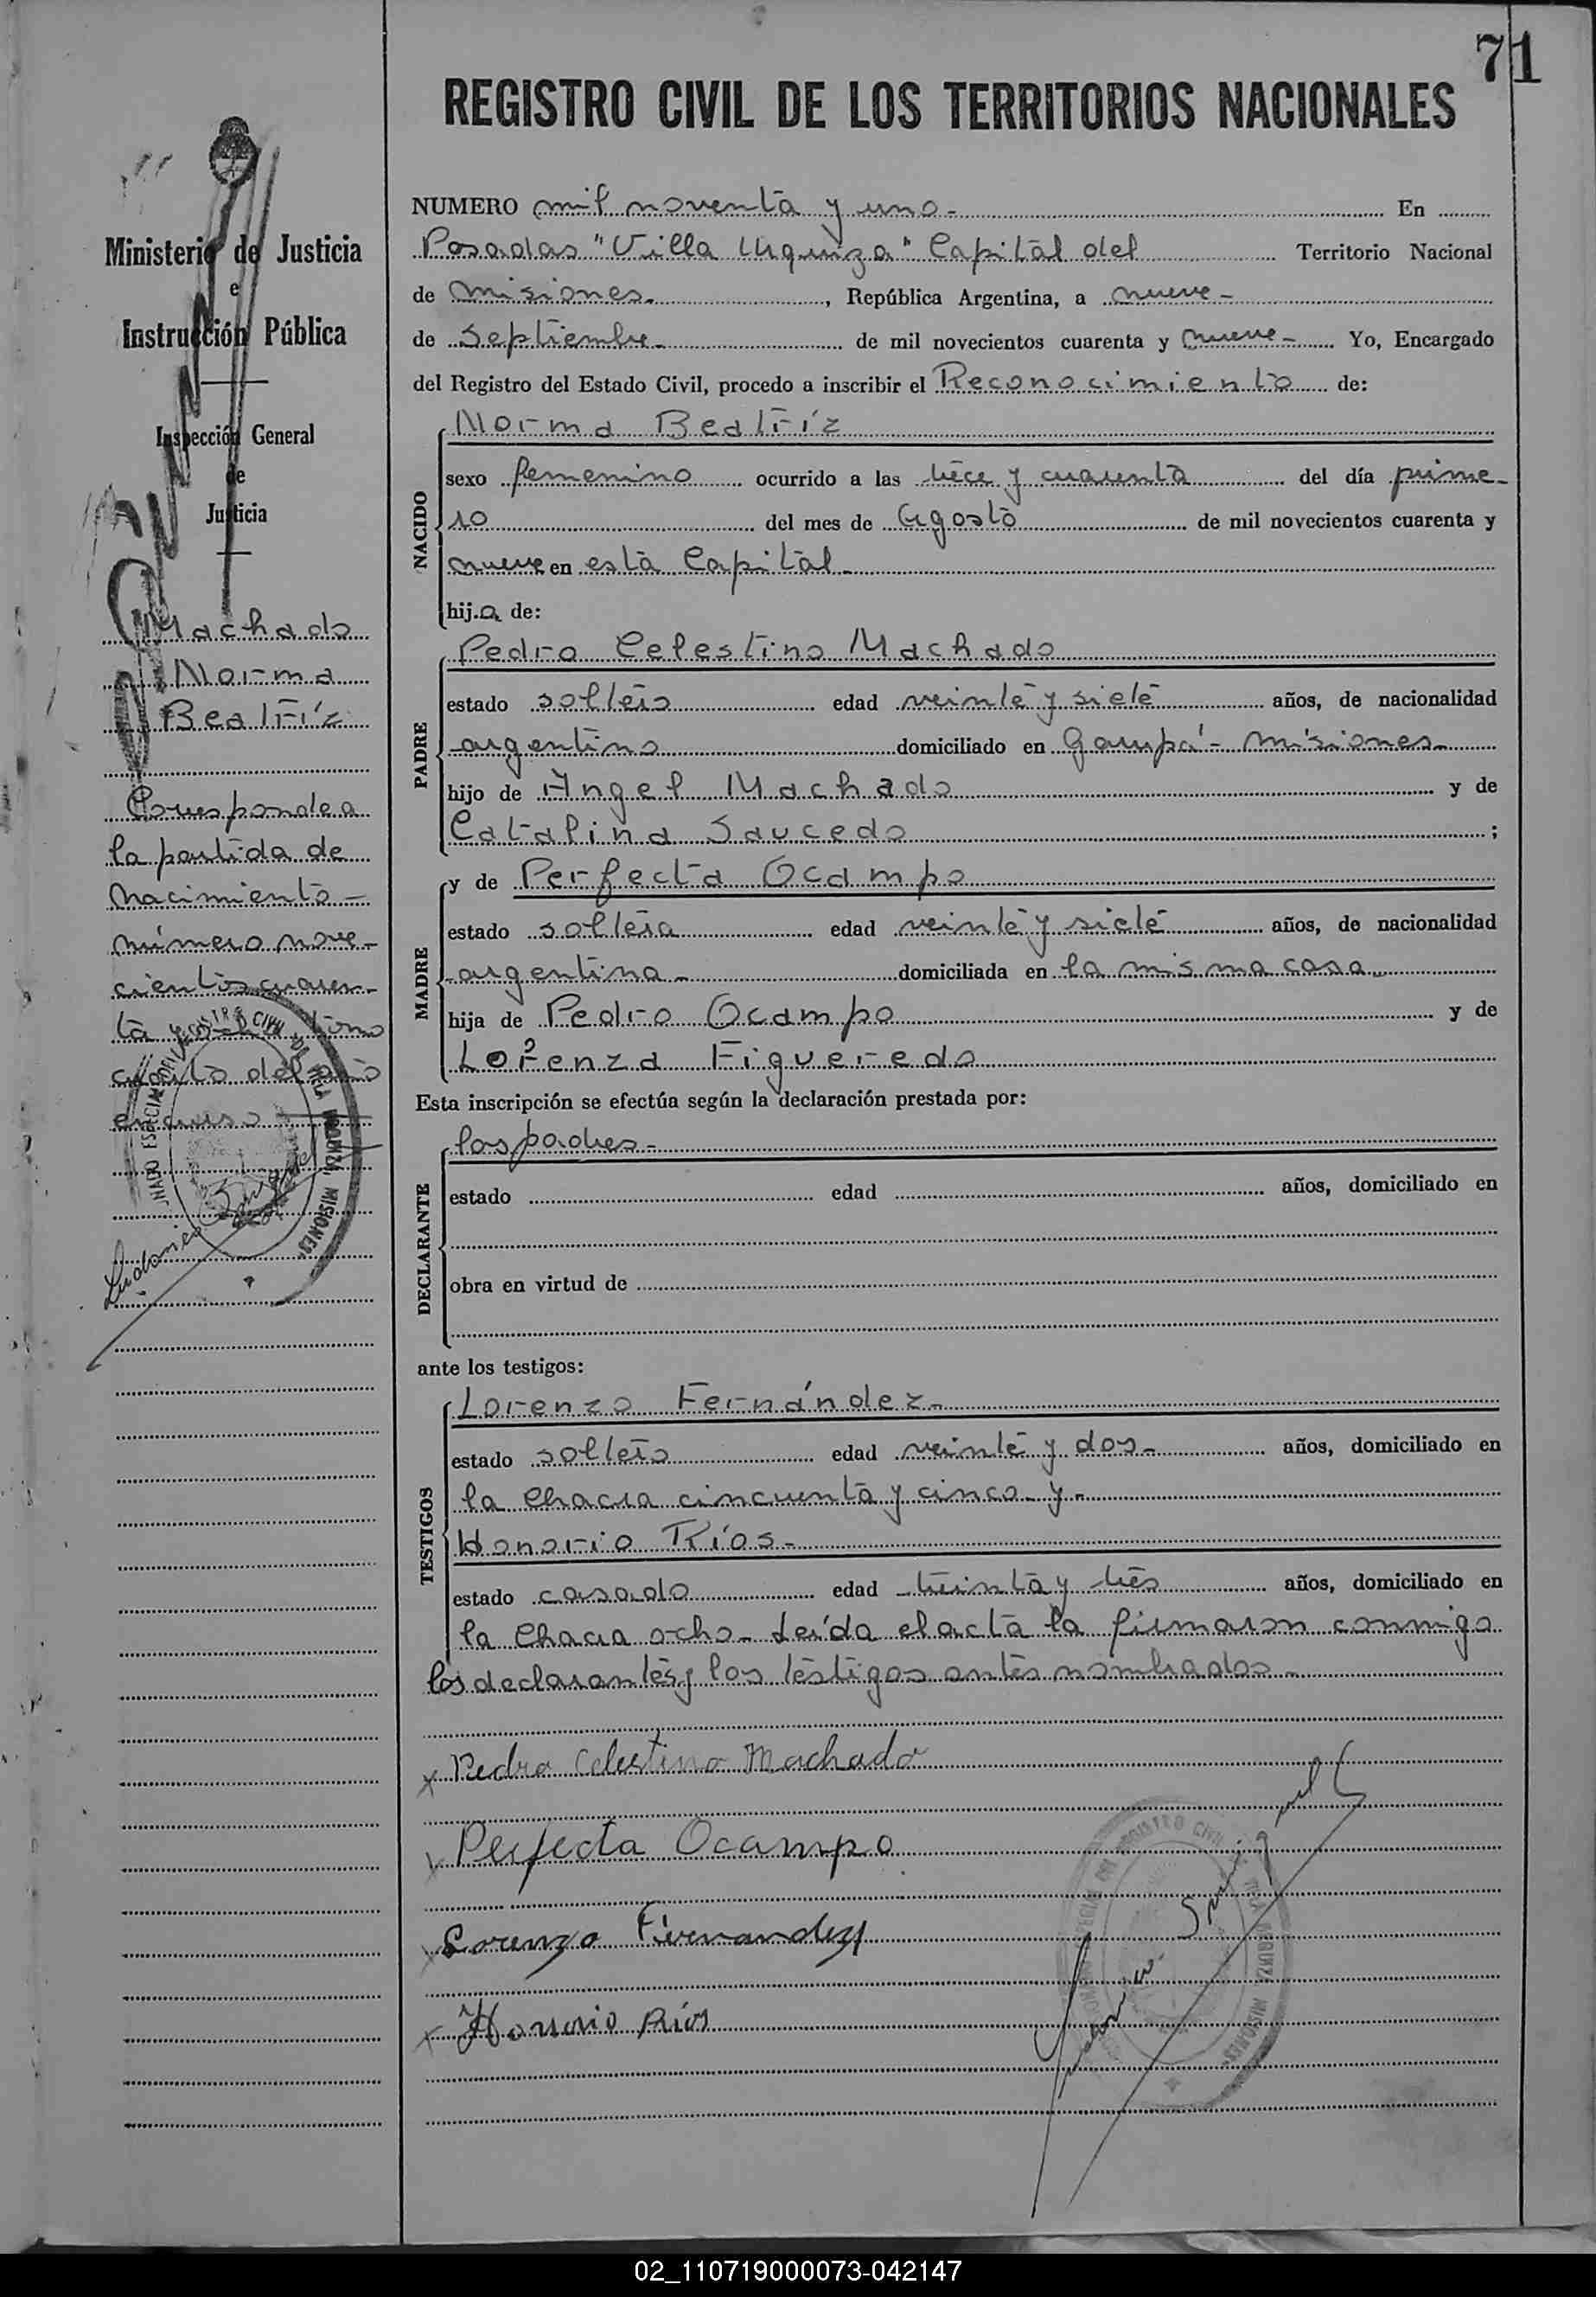 71
REGISTRO CIVIL DE LOS TERRITORIOS NACIONALES
Ministerio de Justicia
e
Instrucción Pública
Inspección General
de
Justicia
Machado
Norma
Beatríz
Corresponde a
la partida de
nacimiento -
número nove-
cientos cuaren-
ta y tomo
cuarto del año
en curso
NUMERO mil noventa y uno.- En
Posadas "Villa Urquiza" Capital del Territorio Nacional
de Misiones.-, República Argentina, a nueve-
de Septiembre- de mil novecientos cuarenta y nueve- Yo, Encargado
del Registro del Estado Civil, procedo a inscribir el Reconocimiento de:
NACIDO
Norma Beatríz
sexo femenino ocurrido a las trece y cuarenta del día prime-
ro del mes de Agosto de mil novecientos cuarenta y
nueve en esta Capital-
hija de:
PADRE
Pedro Celestino Machado
estado soltero edad veinte y siete años, de nacionalidad
argentino domiciliado en Garupá- Misiones-
hijo de Angel Machado y de
Catalina Saucedo ;
MADRE
y de Perfecta Ocampo
estado soltera edad veinte y siete años, de nacionalidad
argentina- domiciliada en la misma casa-
hija de Pedro Ocampo y de
Lorenza Figueredo
Esta inscripción se efectúa según la declaración prestada por:
DECLARANTE
los padres-
estado edad años, domiciliado en
obra en virtud de
ante los testigos:
TESTIGOS
Lorenzo Fernández-
estado soltero edad veinte y dos- años, domiciliado en
la Chacra cincuenta y cinco y-
Honorio Ríos-
estado casado edad treinta y tres años, domiciliado en
la Chacra ocho- Leída el acta la firmaron conmigo
los declarantes y los testigos antes nombrados-
x Pedro Celestino Machado
x Perfecta Ocampo
x Lorenzo Fernandez
x Honorio Ríos
02_110719000073-042147